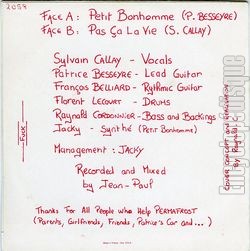 2059
FACE A: Petit Bonhomme (P. BESSEYRE)
FACE B: Pas Ça La Vie (S. CALLAY)
Sylvain CALLAY - Vocals
Patrice BESSEYRE - Lead Guitar
François BELLIARD - Rythmic Guitar
Florent LECOURT - DRUMS
Raynald CORDONNIER - Bass and Backings
Jacky - Synthé (Petit Bonhomme)
Management : JACKY
Recorded and Mixed
by Jean-Paul
Thanks For All People Who Help PERMAFROST
(Parents, Girlfriends, Friends, Patrice's Car and ... )
COVER CONCEPTION
by Raynald